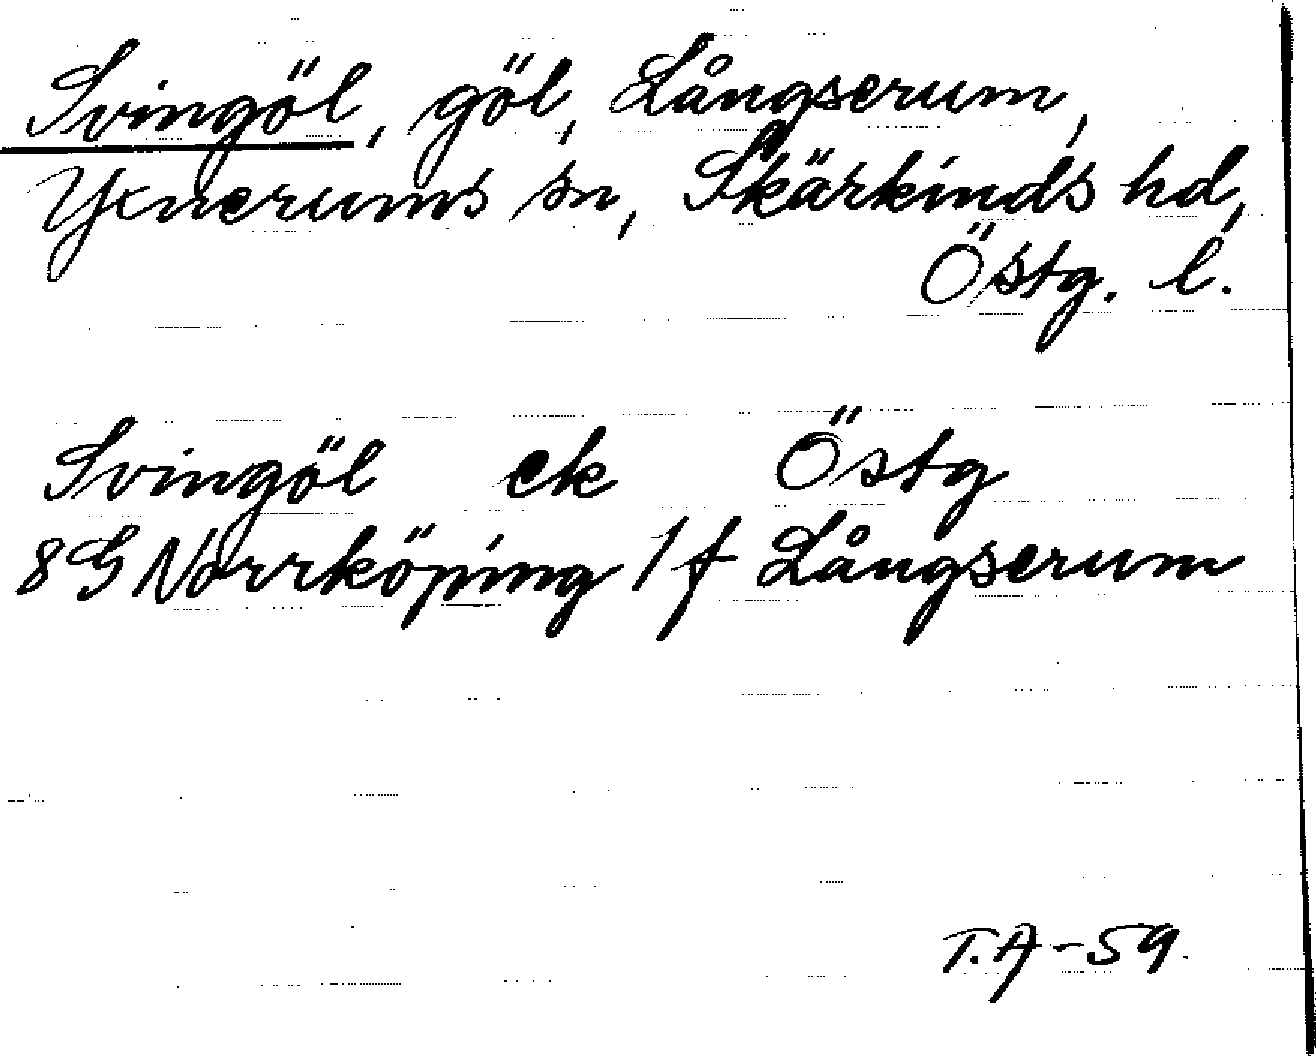 Svingöl, göl, Långserum,
Yxnerums sn, Skärkinds hd,
Östg. l.
Svingöl ek Östg
8G Norrköping 1f Långserum
T.A-59.